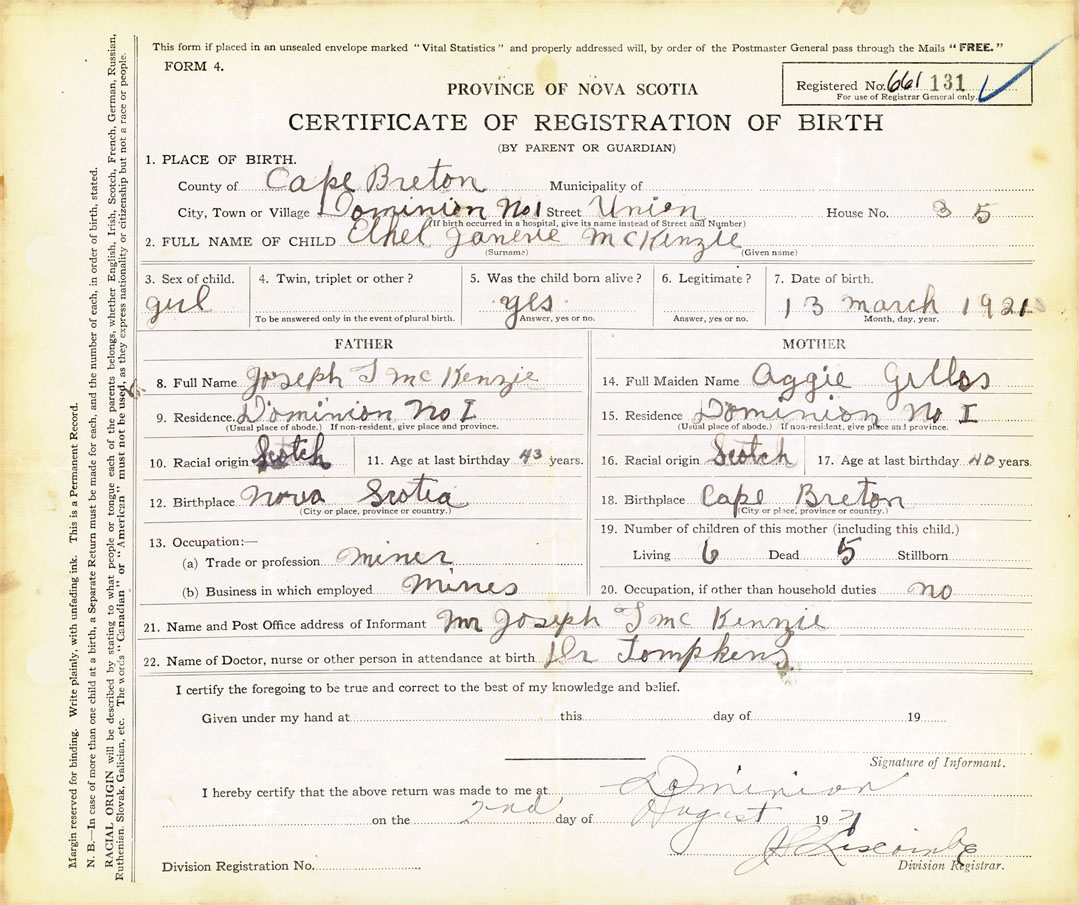 This form if placed in an unsealed envelope marked "Vital Statistics" and properly addressed will, by order of the Postmaster General pass through the Mails "FREE."
FORM 4.
Registered No. 661 131
For use of Registrar General only.
PROVINCE OF NOVA SCOTIA
CERTIFICATE OF REGISTRATION OF BIRTH
(BY PARENT OR GUARDIAN)
1. PLACE OF BIRTH.
County of Cape Breton Municipality of
City, Town or Village Dominion No 1 Street Union House No. 35
(If birth occurred in a hospital, give its name instead of Street and Number)
2. FULL NAME OF CHILD Ethel Janerie McKenzie
(Surname) (Given name)
3. Sex of child. 4. Twin, triplet or other? 5. Was the child born alive? 6. Legitimate? 7. Date of birth.
girl yes 13 march 1921
To be answered only in the event of plural birth. Answer, yes or no. Answer, yes or no. Month, day, year.
FATHER
8. Full Name Joseph S McKenzie
9. Residence. Dominion No I
(Usual place of abode.) If non-resident, give place and province.
10. Racial origin Scotch 11. Age at last birthday 43 years.
12. Birthplace Nova Scotia
(City or place, province or country.)
13. Occupation:—
(a) Trade or profession miner
(b) Business in which employed Mines
MOTHER
14. Full Maiden Name Aggie Gillos
15. Residence Dominion No I
(Usual place of abode.) If non-resident, give place and province.
16. Racial origin Scotch 17. Age at last birthday 40 years.
18. Birthplace Cape Breton
(City or place, province or country.)
19. Number of children of this mother (including this child.)
Living 6 Dead 5 Stillborn
20. Occupation, if other than household duties no
21. Name and Post Office address of Informant Mr Joseph S McKenzie
22. Name of Doctor, nurse or other person in attendance at birth Dr Tompkens
I certify the foregoing to be true and correct to the best of my knowledge and belief.
Given under my hand at this day of 19
Signature of Informant.
I hereby certify that the above return was made to me at Dominion
on the 2nd day of August 1921
J Liscombe
Division Registration No. Division Registrar.
Margin reserved for binding. Write plainly, with unfading ink. This is a Permanent Record.
N. B.—In case of more than one child at a birth, a Separate Return must be made for each, and the number of each, in order of birth, stated.
RACIAL ORIGIN will be described by stating to what people or tongue each of the parents belongs, whether English, Irish, Scotch, French, German, Russian,
Ruthenian, Slovak, Galician, etc. The words "Canadian" or "American" must not be used, as they express nationality or citizenship but not a race or people.